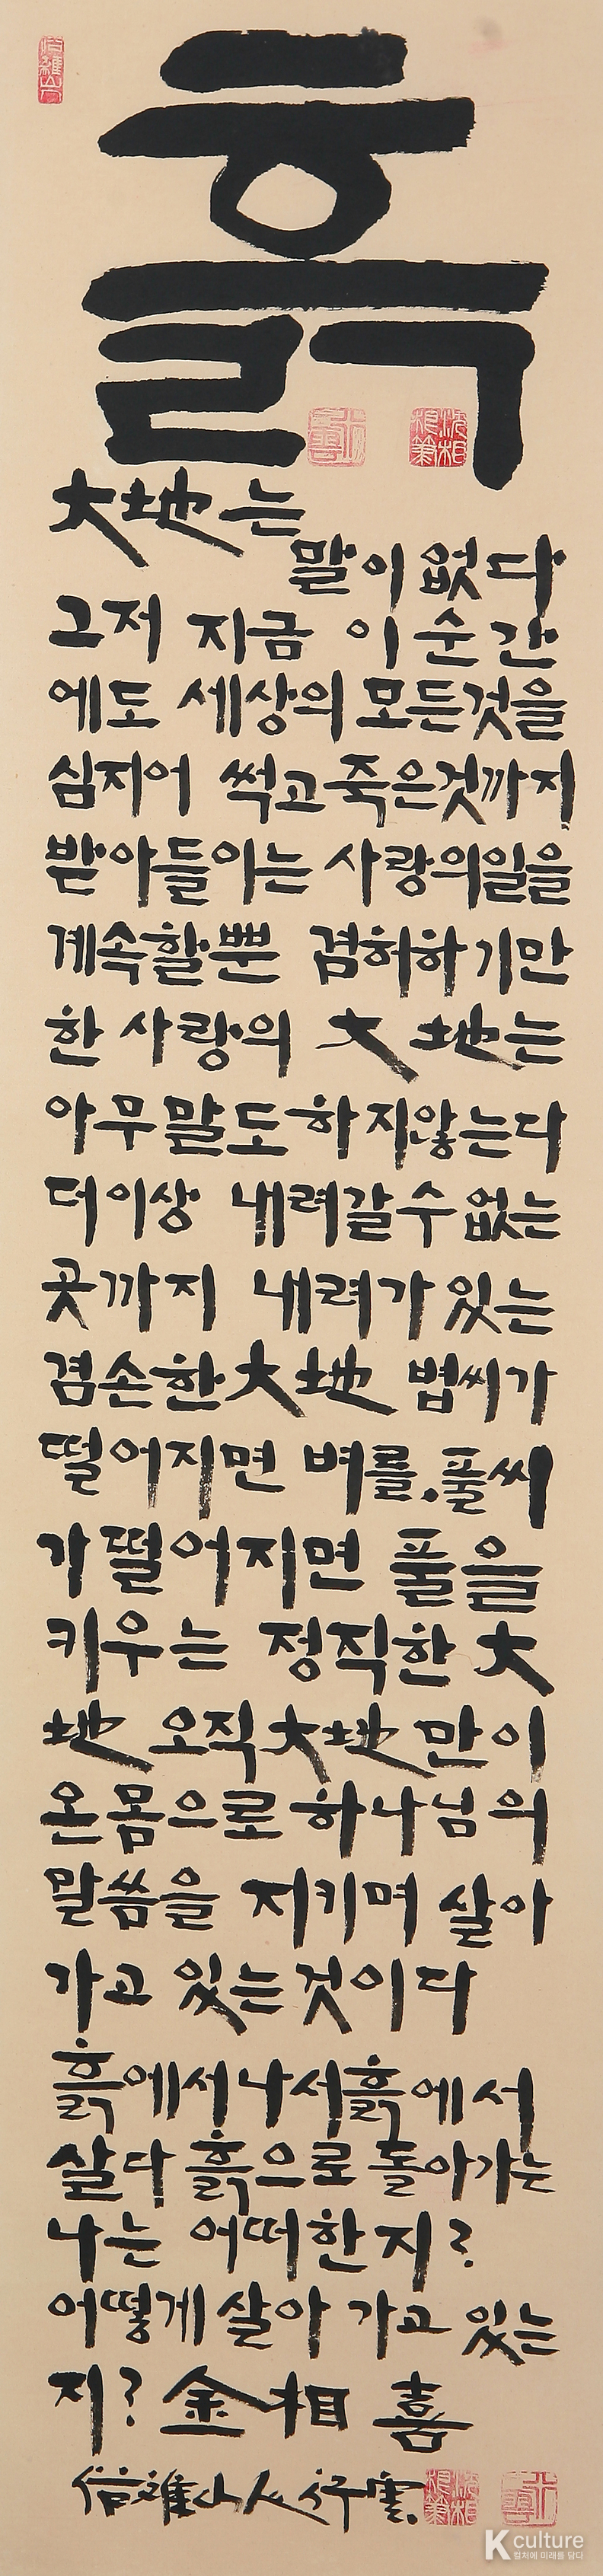 흙
大地는
말이 없다
그저 지금 이 순간
에도 세상의 모든것을
심지어 썩고 죽은것까지
받아들이는 사랑의일을
계속할뿐 겸허하기만
한 사랑의 大地는
아무말도 하지않는다
더이상 내려갈수없는
곳까지 내려가있는
겸손한大地 볍씨가
떨어지면 벼를.풀씨
가떨어지면 풀을
키우는 정직한 大
地 오직大地만이
온몸으로 하나님의
말씀을 지키며 살아
가고 있는것이다
흙에서나서흙에서
살다 흙으로 돌아가는
나는 어떠한지?
어떻게 살아 가고 있는
지? 金相 喜
信難山人行雲
K culture
컬처에 미래를 담다